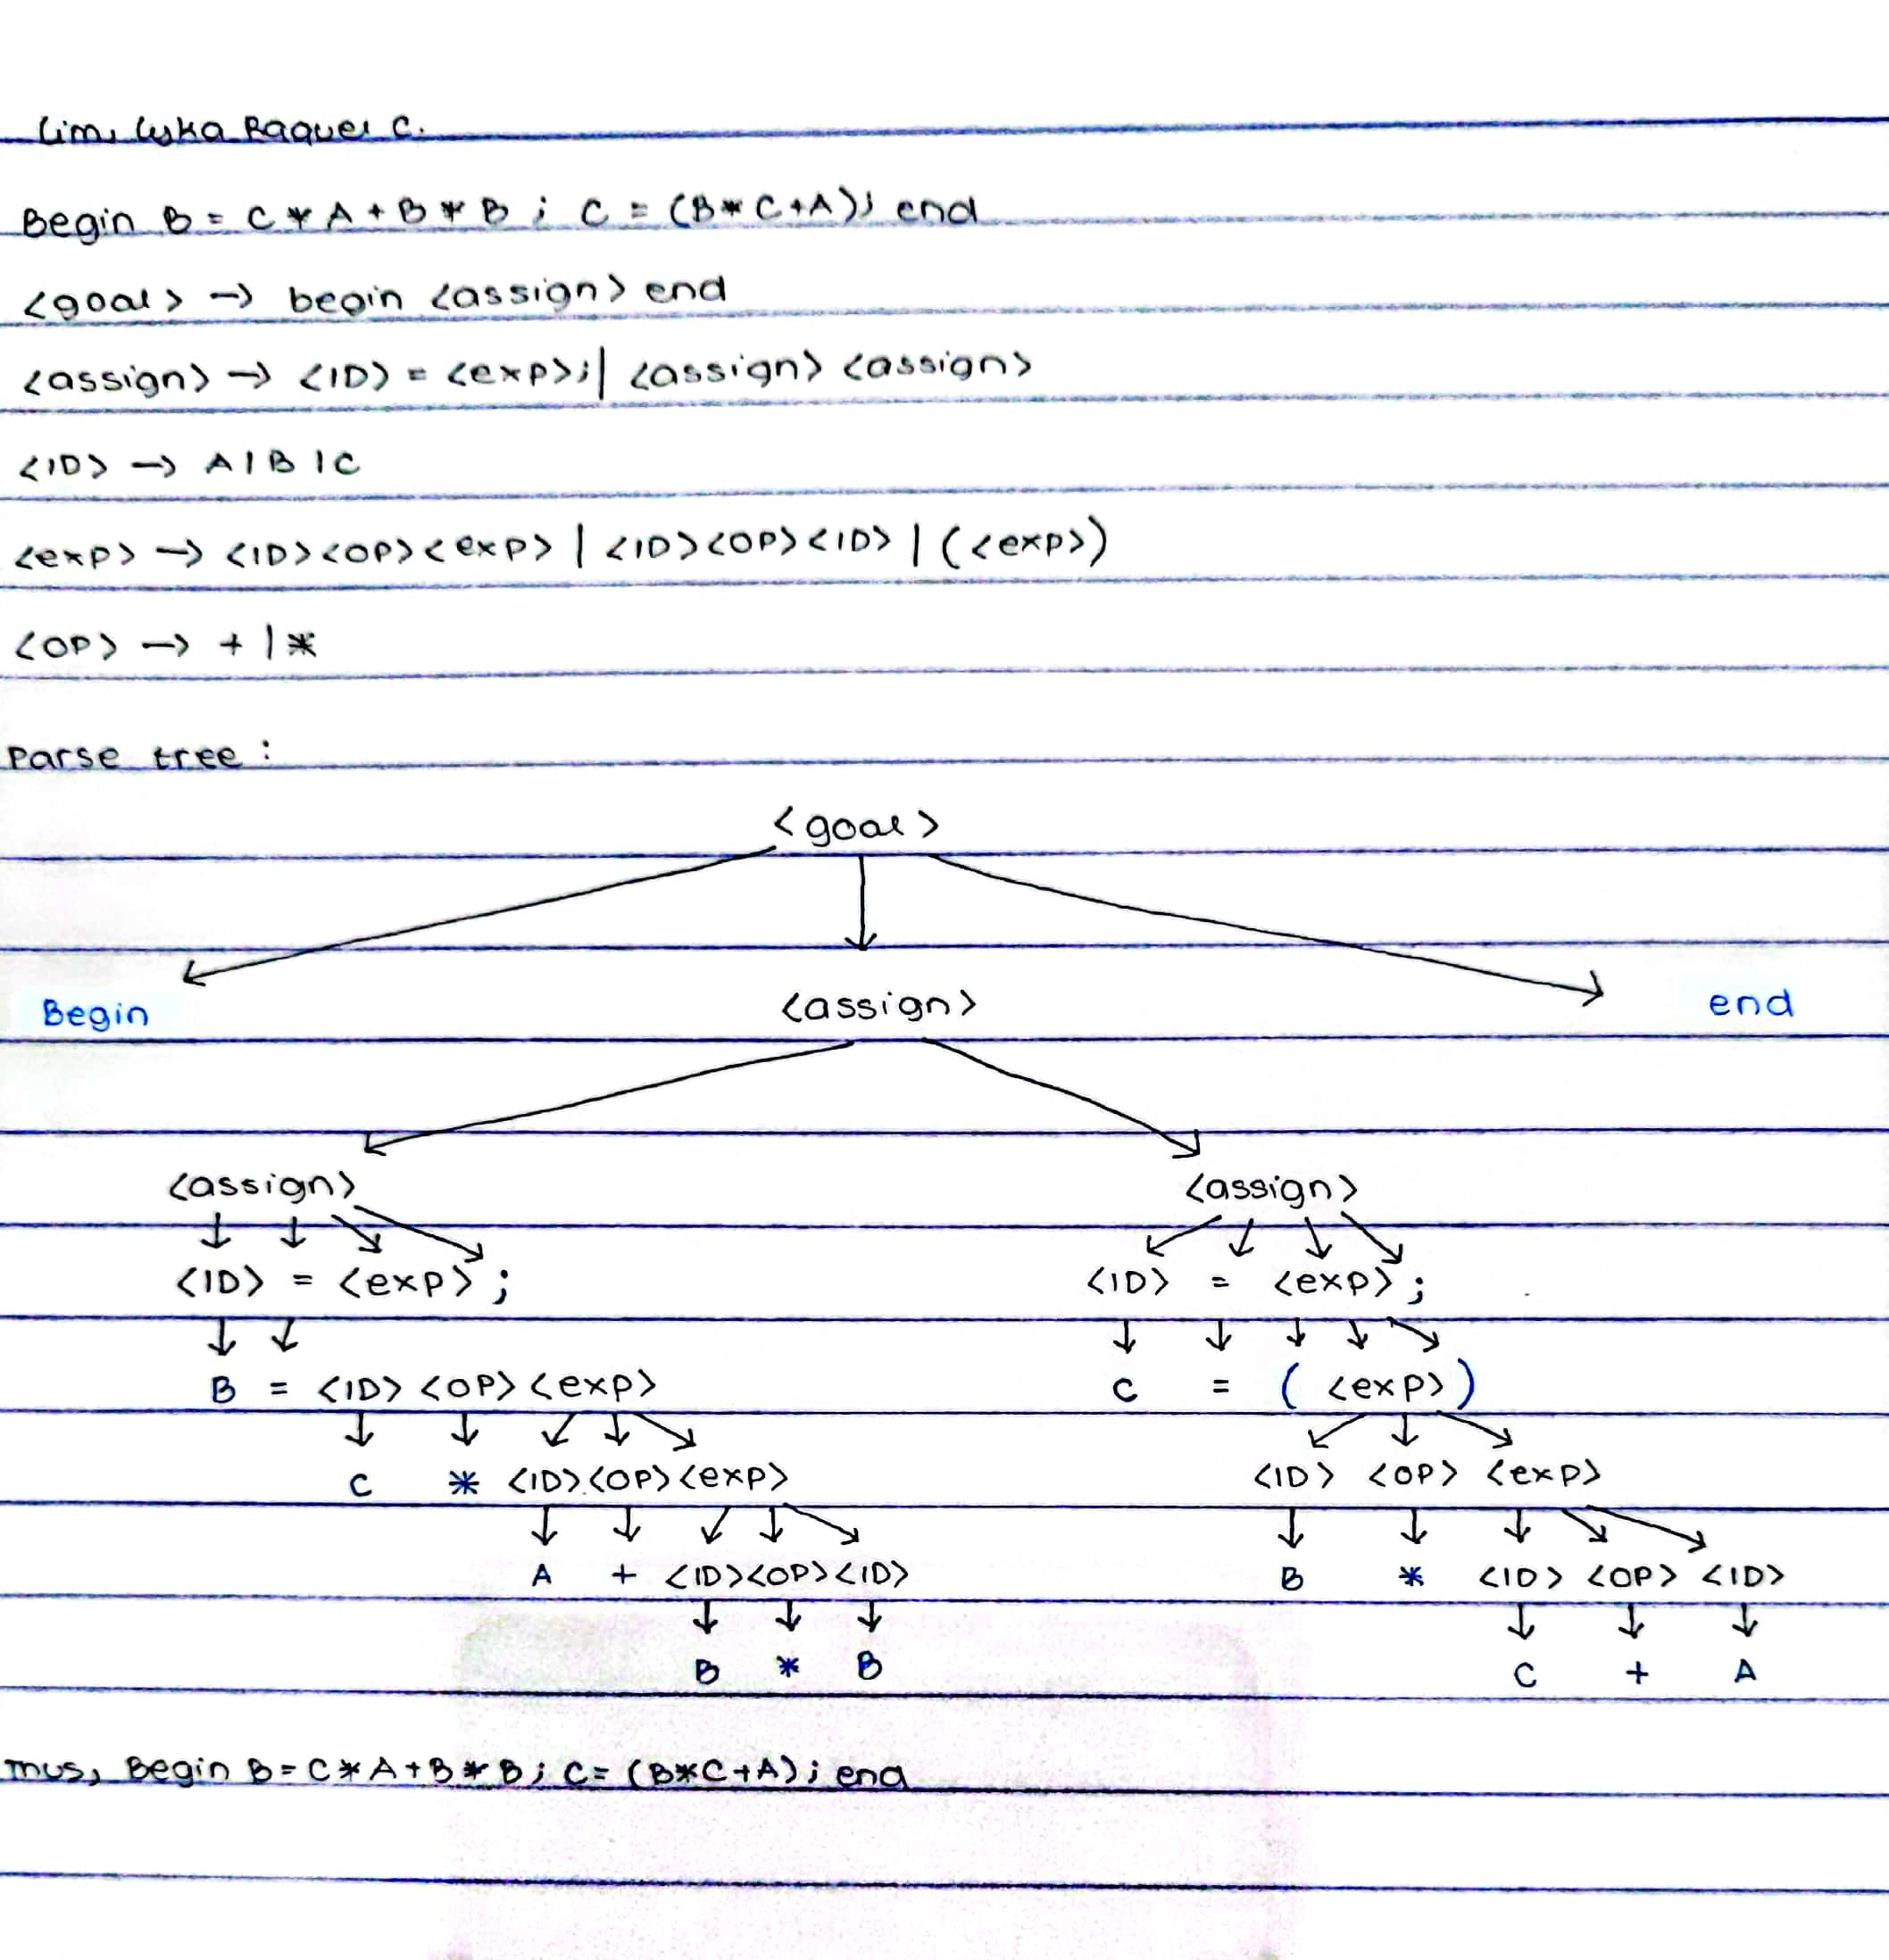 Lim, Lyka Raquel C.
Begin B = C * A + B * B ; C = (B * C + A) ; end
<goal> → begin <assign> end
<assign> → <ID> = <exp>; | <assign> <assign>
<ID> → A | B | C
<exp> → <ID><OP><exp> | <ID><OP><ID> | (<exp>)
<OP> → + | *
Parse tree :
<goal>
Begin <assign> end
<assign> <assign>
<ID> = <exp> ; <ID> = <exp> ;
B = <ID> <OP> <exp> C = ( <exp> )
C * <ID> <OP> <exp> <ID> <OP> <exp>
A + <ID> <OP> <ID> B * <ID> <OP> <ID>
B * B C + A
Thus, Begin B = C * A + B * B ; C = (B * C + A) ; end